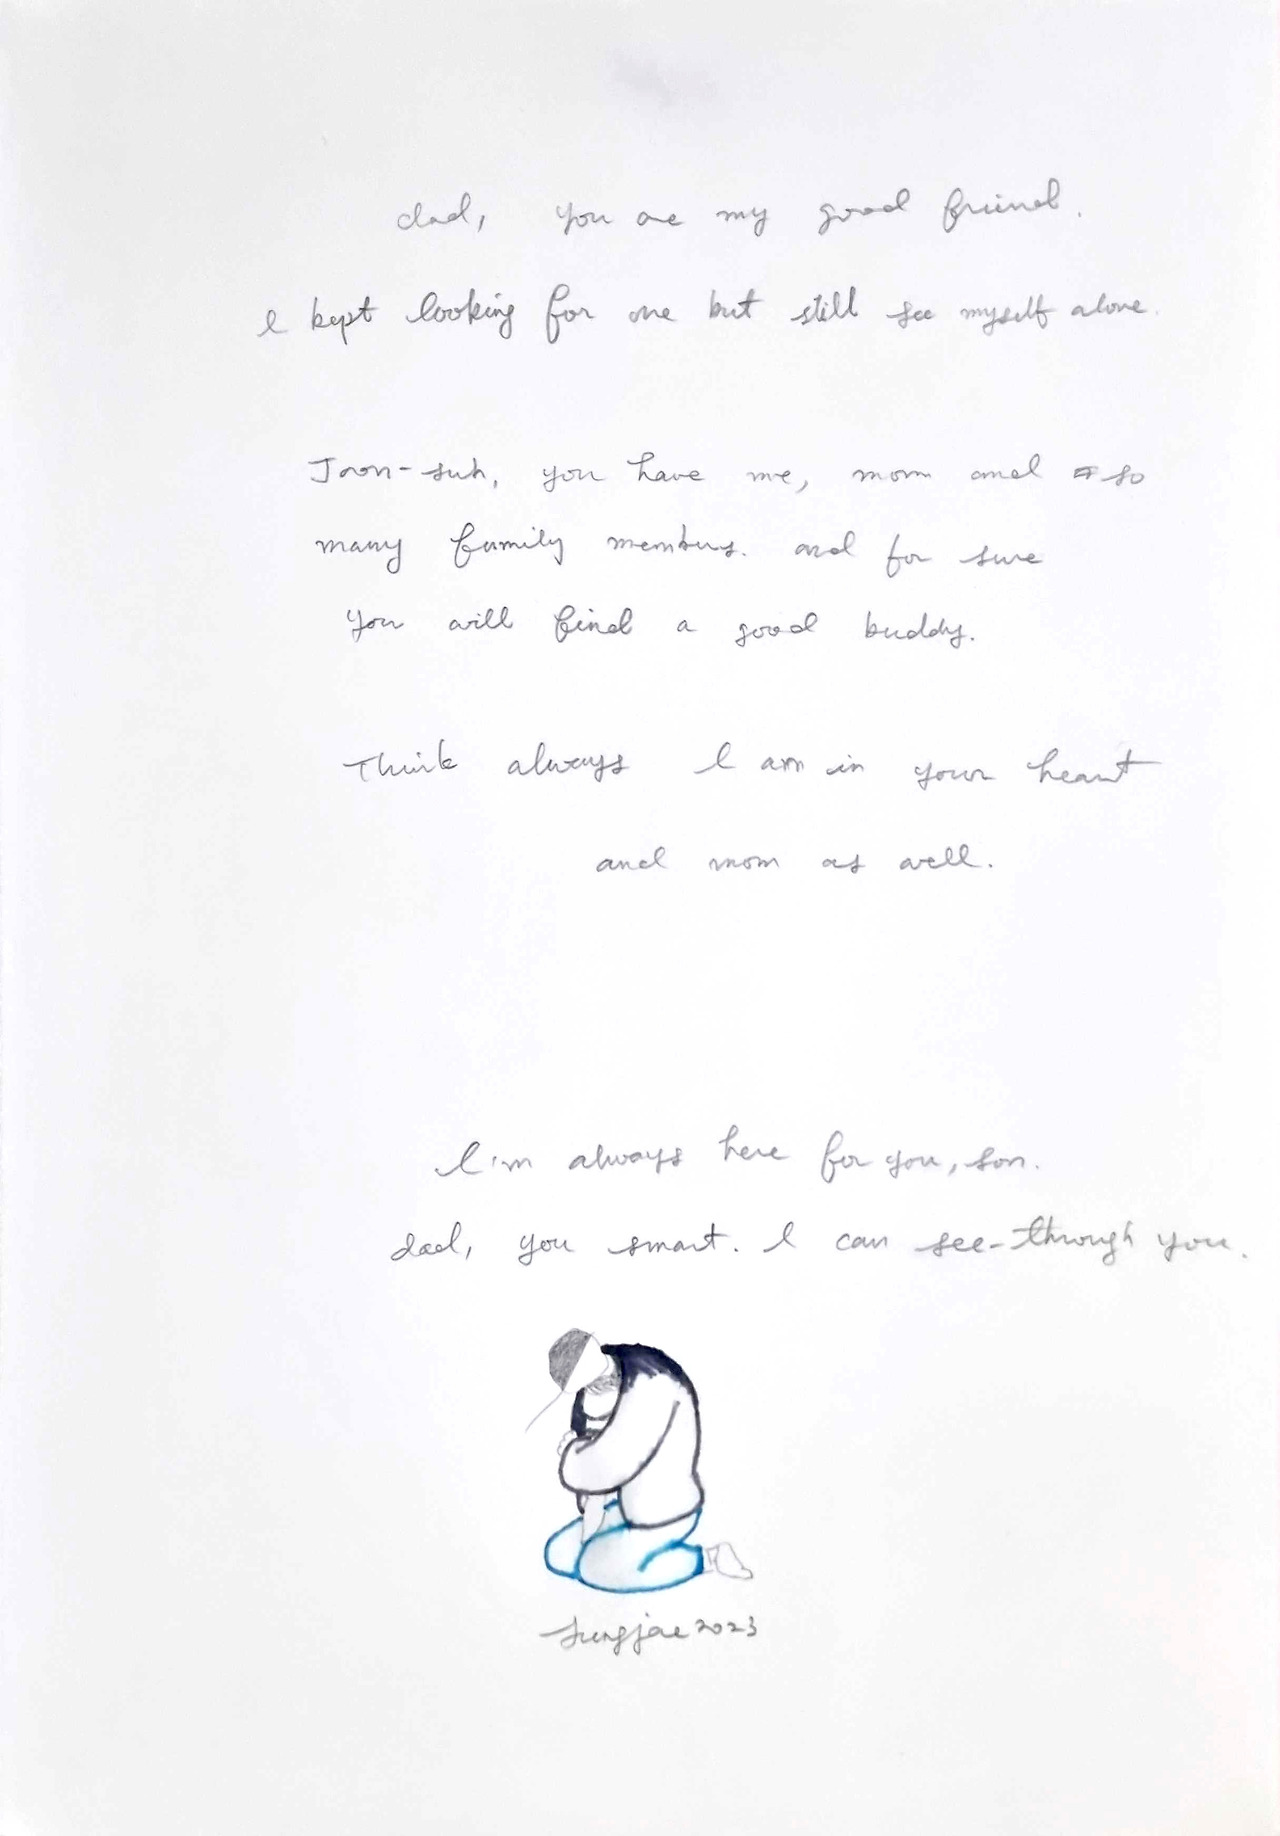 dad, you are my good friend.
I kept looking for one but still see myself alone.
Joon-suh, you have me, mom and so
many family members. and for sure
you will find a good buddy.
Think always I am in your heart
and mom as well.
I'm always here for you, son.
dad, you smart. I can see-through you.
Sungjae 2023